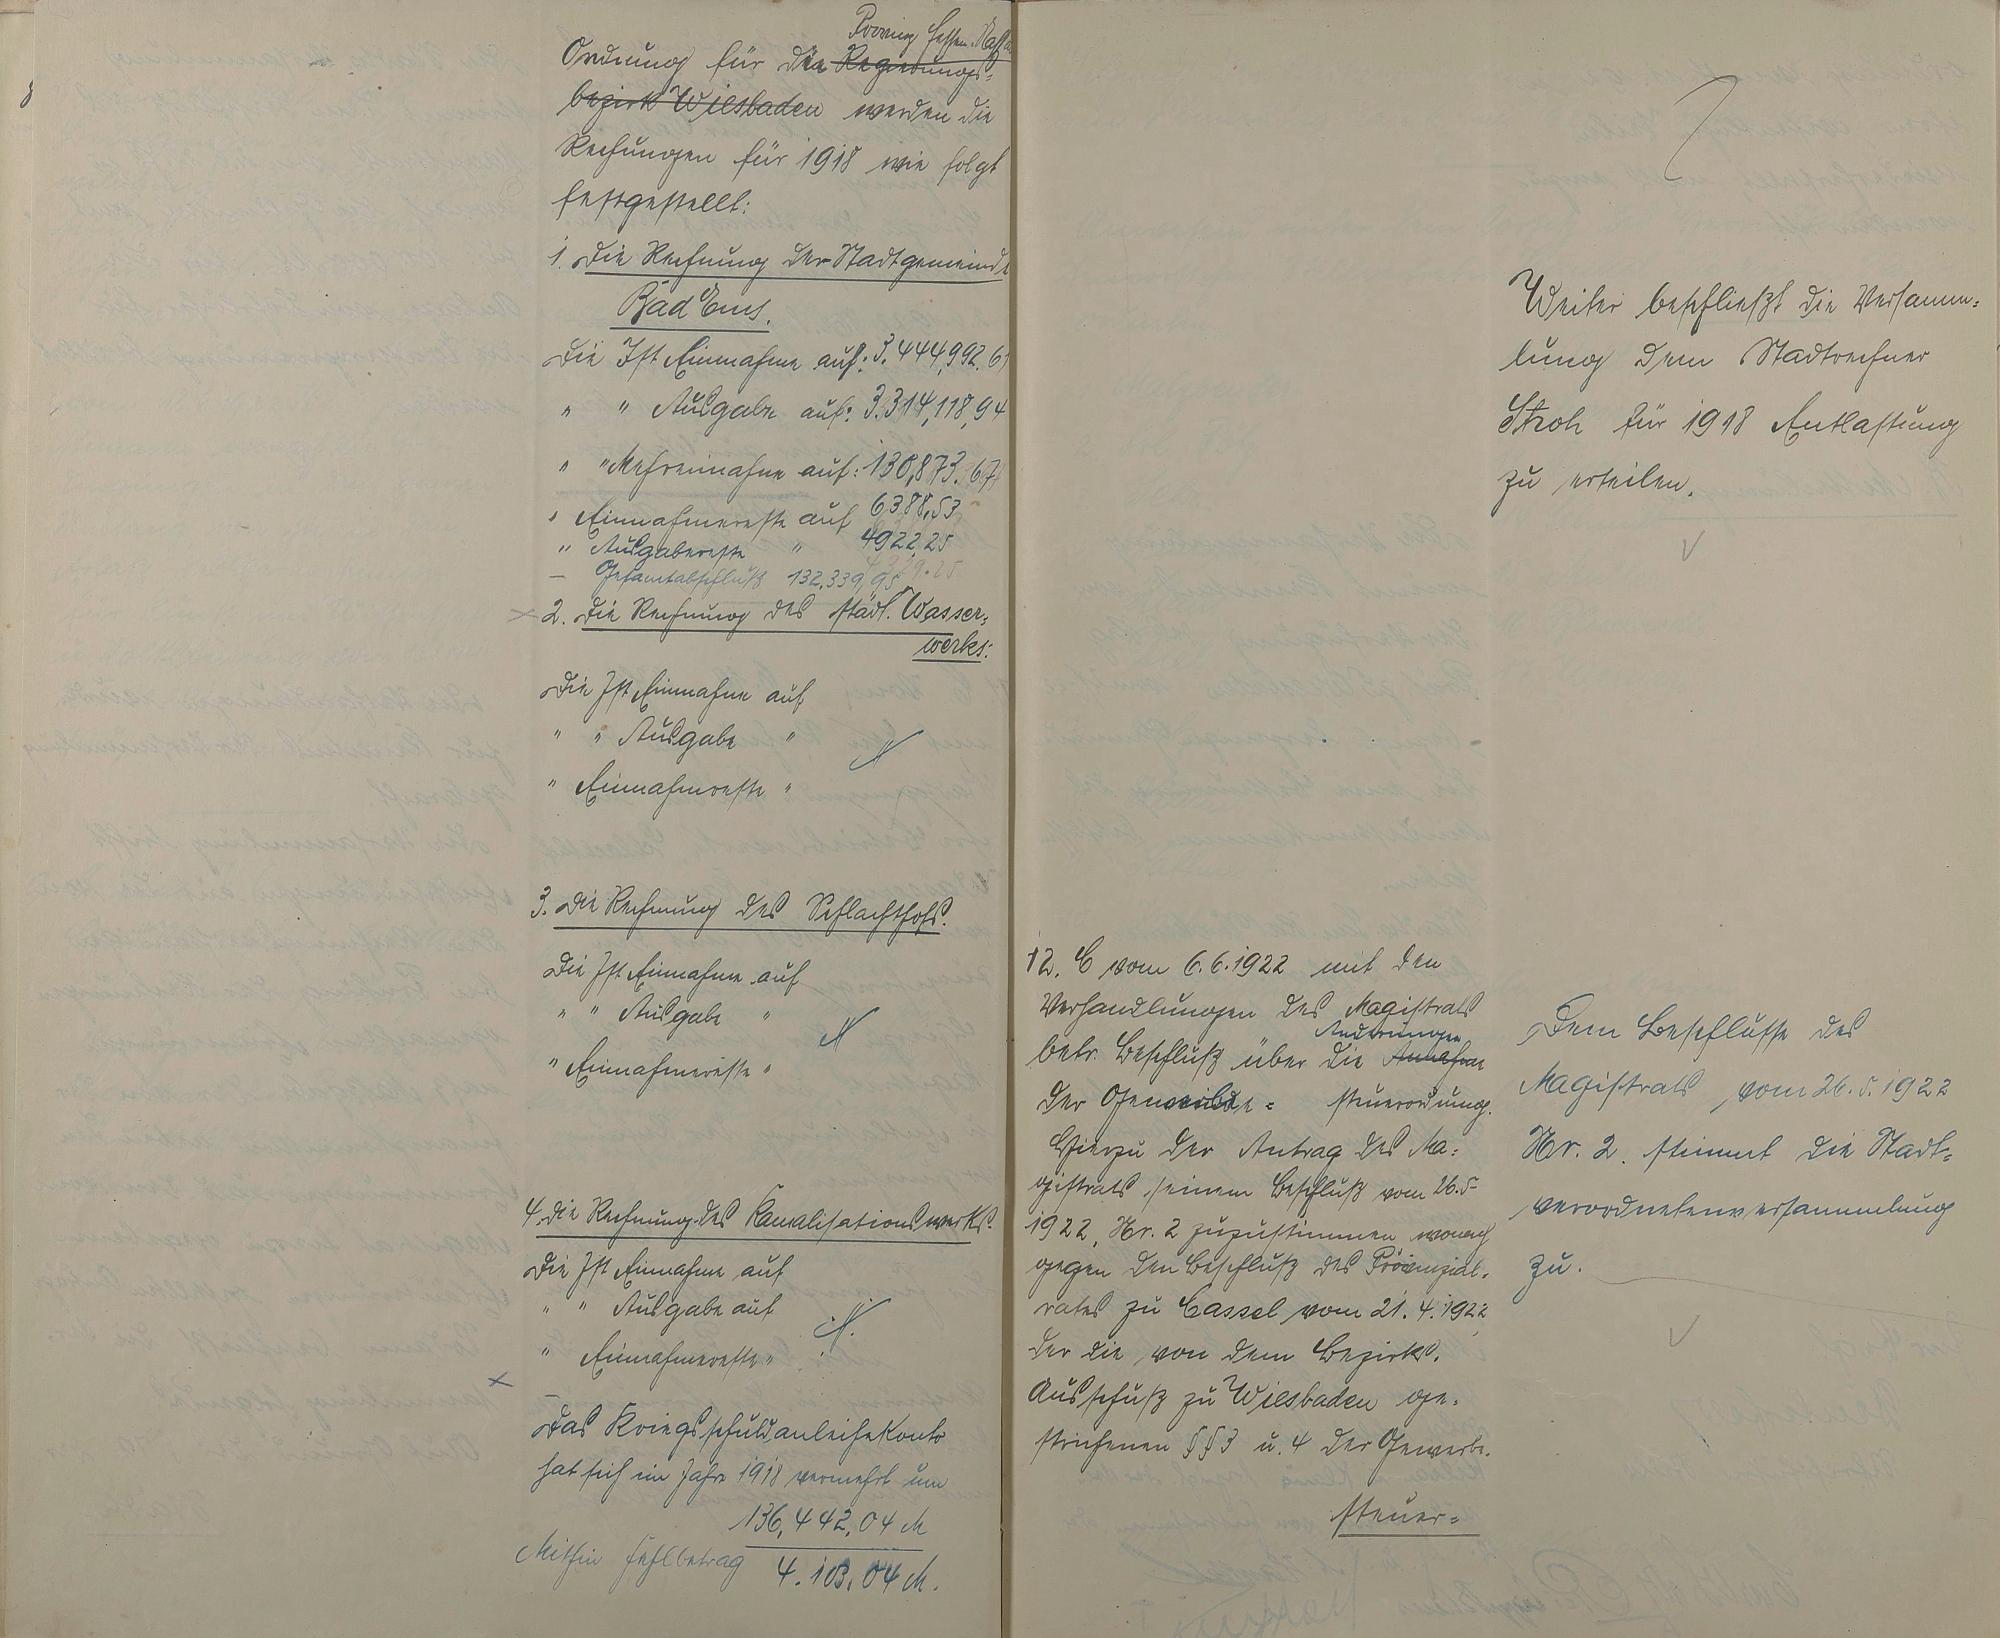 Provinz Hessen-Nassau
Ordnung für die Regierungs-
bezirk Wiesbaden werden die
Rechnungen für 1918 wie folgt
festgestellt:
1. Die Rechnung der Stadtgemeinde
Bad Ems.
Die Ist Einnahme auf: 3.444,992.61
" " Ausgabe auf: 3.314,118,94
" " Mehreinnahme auf: 130,873.67
" Einnahmereste auf 6388,53
" Ausgabereste " 4922,25
— Gesamtabschluß 132.339,95
2. Die Rechnung des städt. Wasser-
werks:
Die Ist Einnahme auf
" " Ausgabe "
" Einnahmereste "
3. Die Rechnung des Schlachthofs.
Die Ist Einnahme auf
" " Ausgabe "
" Einnahmereste "
4. Die Rechnung des Kanalisationswerks.
Die Ist Einnahme auf
" " Ausgabe auf
" Einnahmereste "
Das Kriegsschuldanleihekonto
hat sich im Jahre 1918 vermehrt um
136,442,04 M
Mithin Fehlbetrag 4.103,04 M.
Weiter beschließt die Versamm-
lung dem Stadtrechner
Stroh für 1918 Entlastung
zu erteilen.
12. C vom 6.6.1922 mit den
Verhandlungen des Magistrats
Änderungen
betr. Beschluß über die Annahme
der Gewerbe- steuerordnung.
Hierzu der Antrag des Ma-
gistrats seinem Beschluß vom 26.5.
1922, Nr. 2 zuzustimmen wonach
gegen den Beschluß des Provinzial-
rates zu Cassel vom 21.4.1922,
der die von dem Bezirks-
Ausschuß zu Wiesbaden ge-
strichenen §§ 3 u. 4 der Gewerbe-
steuer-
Dem Beschlusse des
Magistrats vom 26.5.1922
Nr. 2. stimmt die Stadt-
verordnetenversammlung
zu.